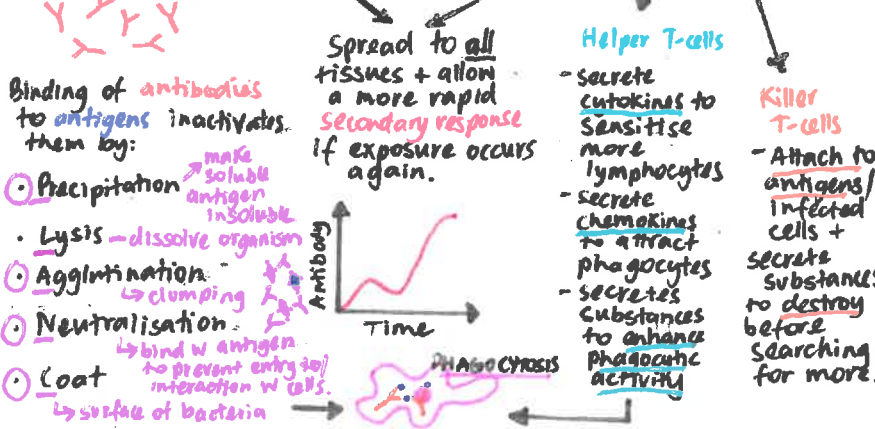 Binding of antibodies
to antigens inactivates
them by:
• Precipitation
make
soluble
antigen
insoluble
• Lysis – dissolve organism
• Agglintination
↳ clumping
• Neutralisation
↳ bind w antigen
to prevent entry to/
interaction w cells.
• Coat
↳ surface of bacteria
Spread to all
tissues + allow
a more rapid
secondary response
if exposure occurs
again.
Antibody
Time
PHAGOCYTOSIS
Helper T-cells
- secrete
cytokines to
sensitise
more
lymphocytes
- secrete
chemokines
to attract
phagocytes
- secretes
substances
to enhance
phagocytic
activity
Killer
T-cells
- Attach to
antigens/
infected
cells +
secrete
substances
to destroy
before
searching
for more.